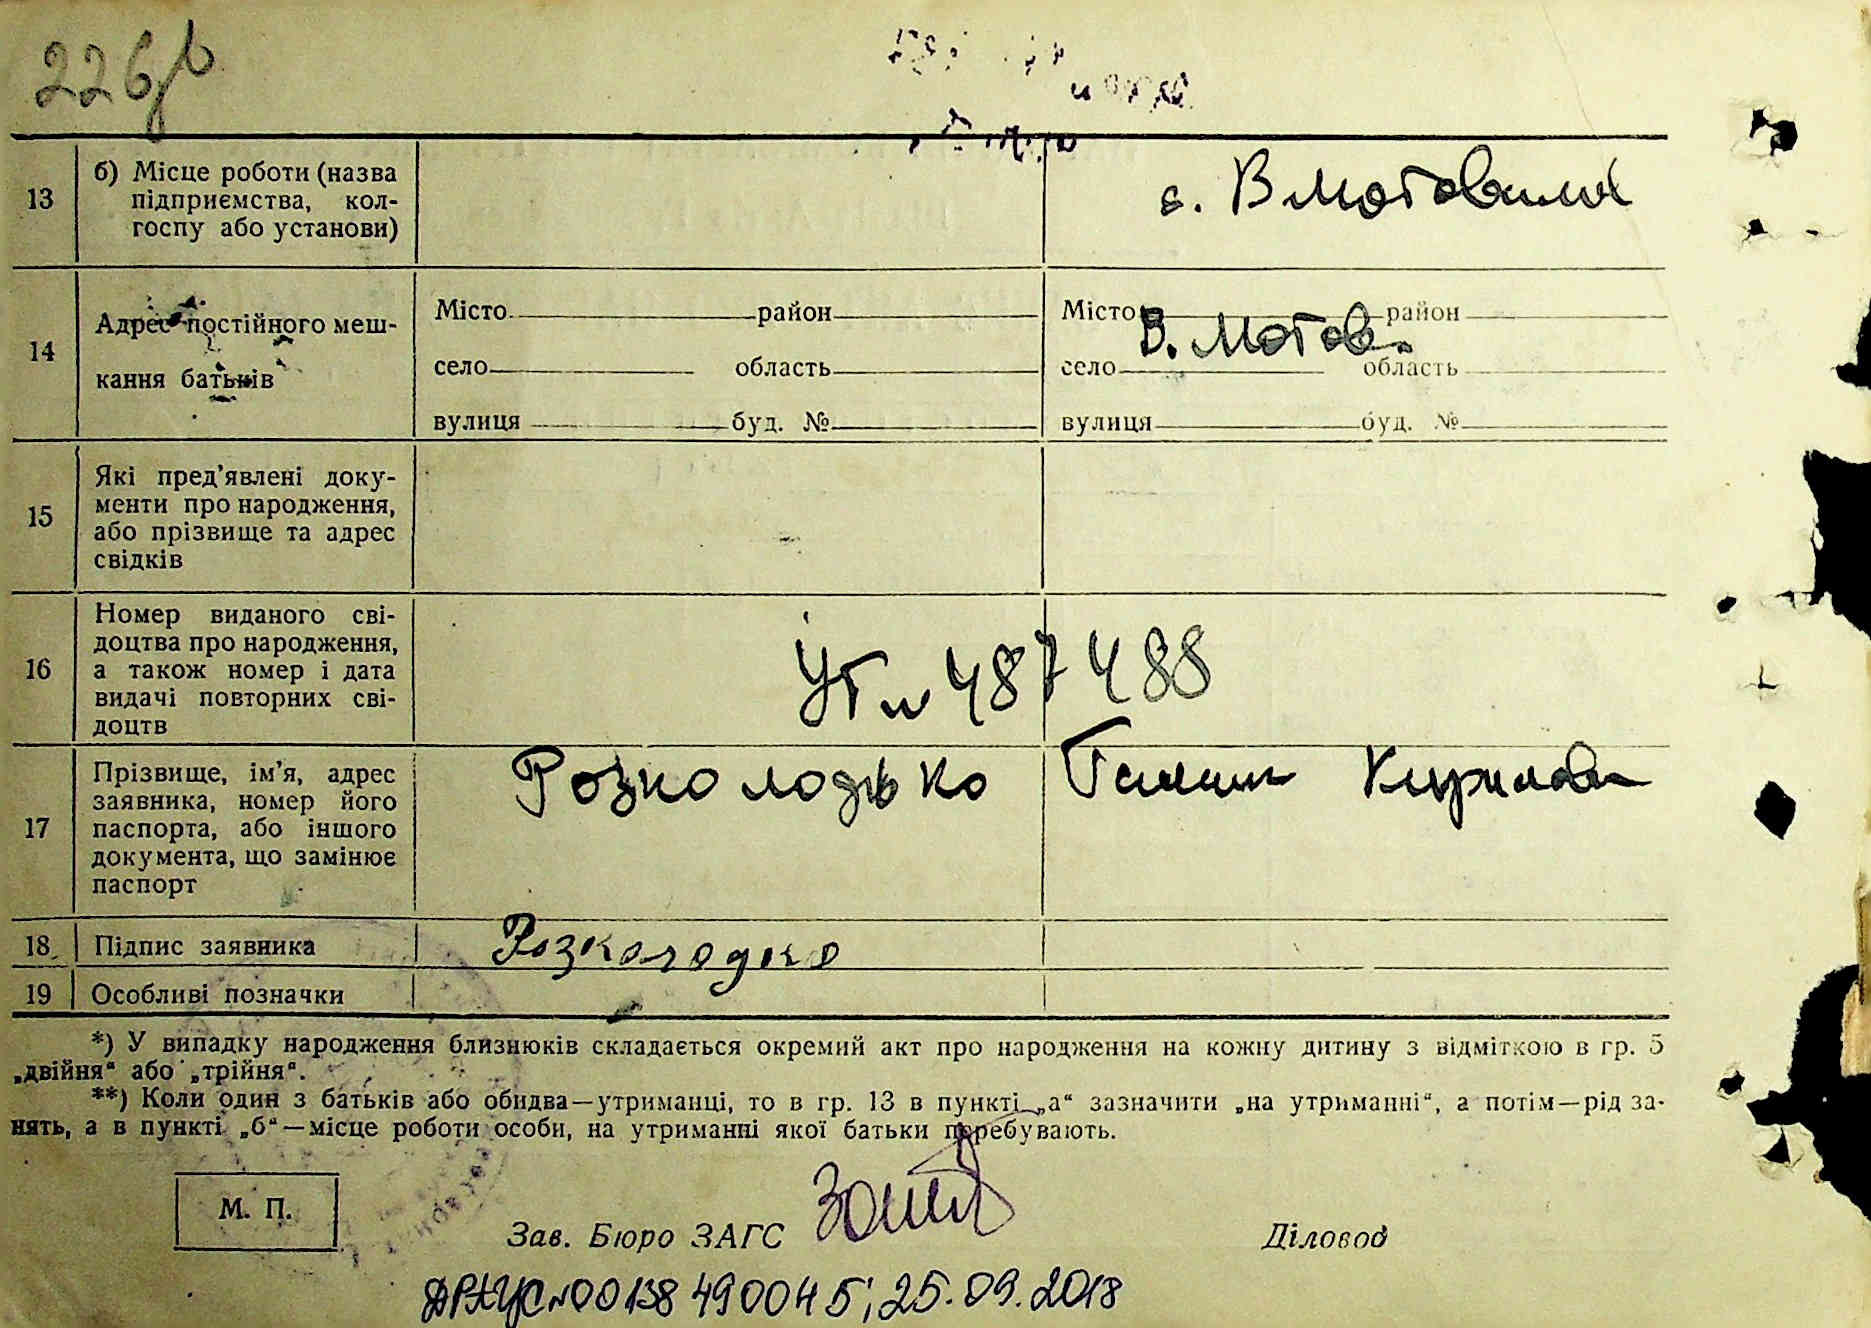 226
13
б) Місце роботи (назва
підприємства, кол-
госпу або установи)
с. В Мотовил
14
Адрес постійного меш-
кання батьків
Місто район
село область
вулиця буд. №
Місто район
В. Мотов.
село область
вулиця буд. №
15
Які пред’явлені доку-
менти про народження,
або прізвище та адрес
свідків
16
Номер виданого сві-
доцтва про народження,
а також номер і дата
видачі повторних сві-
доцтв
487488
17
Прізвище, ім’я, адрес
заявника, номер його
паспорта, або іншого
документа, що замінює
паспорт
Розколодько Галина
18
Підпис заявника
Розколодко
19
Особливі позначки
*) У випадку народження близнюків складається окремий акт про народження на кожну дитину з відміткою в гр. 5
„двійня“ або „трійня“.
**) Коли один з батьків або обидва—утриманці, то в гр. 13 в пункті „а“ зазначити „на утриманні“, а потім—рід за-
нять, а в пункті „б“—місце роботи особи, на утриманні якої батьки перебувають.
М. П.
Зав. Бюро ЗАГС
Діловод
ДРАЦС №00138490045; 25.09.2018